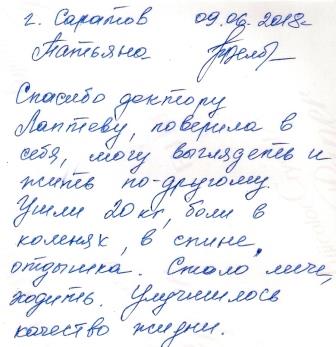 г. Саратов 09.06.2018г
Татьяна
Спасибо доктору
Лаптеву, поверила в
себя, могу выглядеть и
жить по-другому.
Ушли 20 кг, боли в
коленях, в спине,
отдышка. Стало легче,
ходить. Улучшилось
качество жизни.